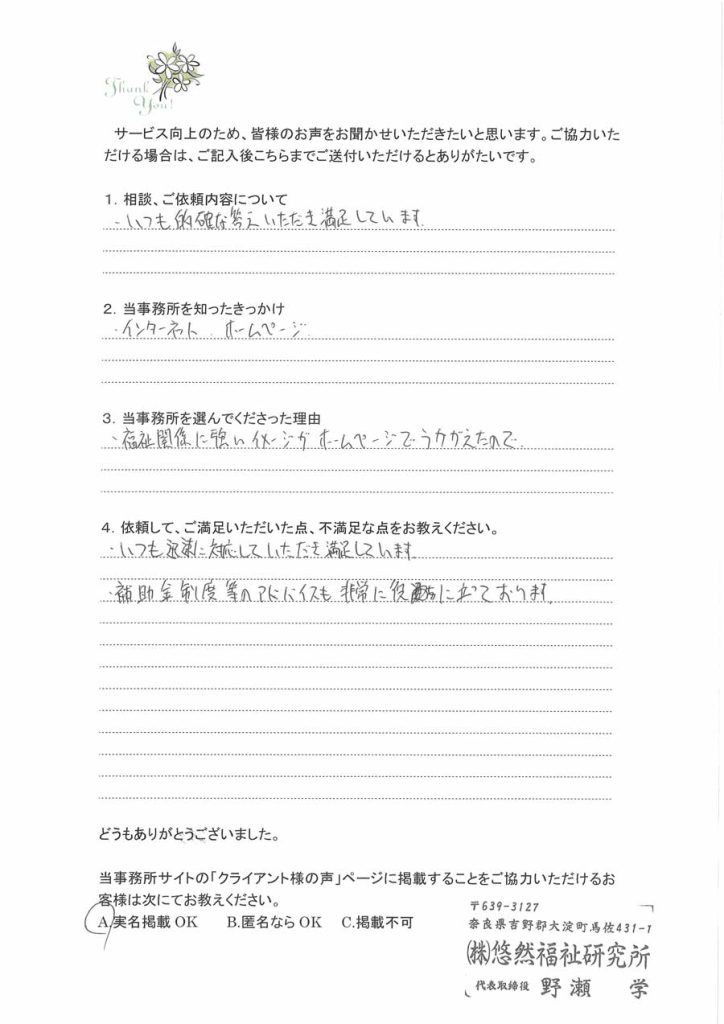 Thank
You!
サービス向上のため、皆様のお声をお聞かせいただきたいと思います。ご協力いた
だける場合は、ご記入後こちらまでご送付いただけるとありがたいです。
1. 相談、ご依頼内容について
・いつも的確な答えいただき満足しています。
2. 当事務所を知ったきっかけ
・インターネット、ホームページ
3. 当事務所を選んでくださった理由
・福祉関係に強いイメージがホームページでうかがえたので。
4. 依頼して、ご満足いただいた点、不満足な点をお教えください。
・いつも迅速に対応していただき満足しています
・補助金制度等のアドバイスも非常に役に立っております。
どうもありがとうございました。
当事務所サイトの「クライアント様の声」ページに掲載することをご協力いただけるお
客様は次にてお教えください。
A.実名掲載 OK B.匿名なら OK C.掲載不可
〒639-3127
奈良県吉野郡大淀町馬佐431-1
(株)悠然福祉研究所
代表取締役 野瀬 学